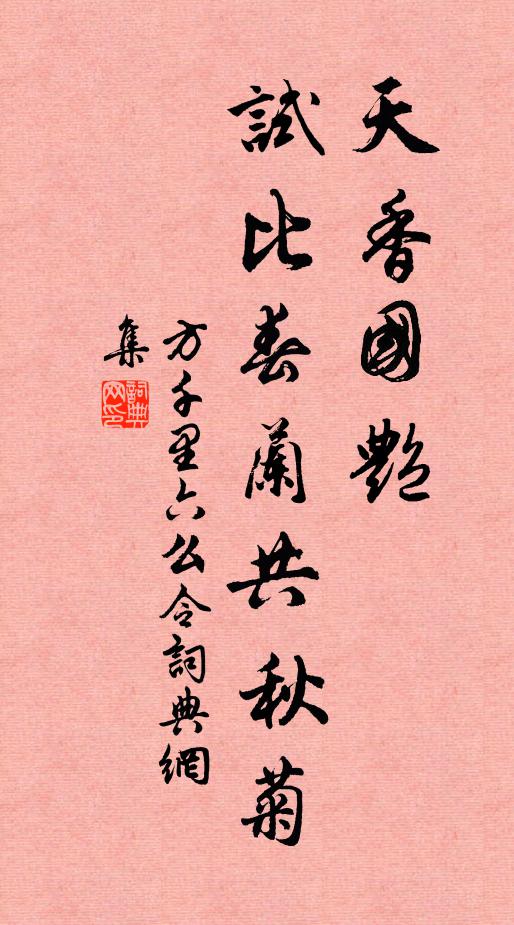 天香國艷
試比春蘭共秋菊
方千里六么令詞典網
集
詞典
网印